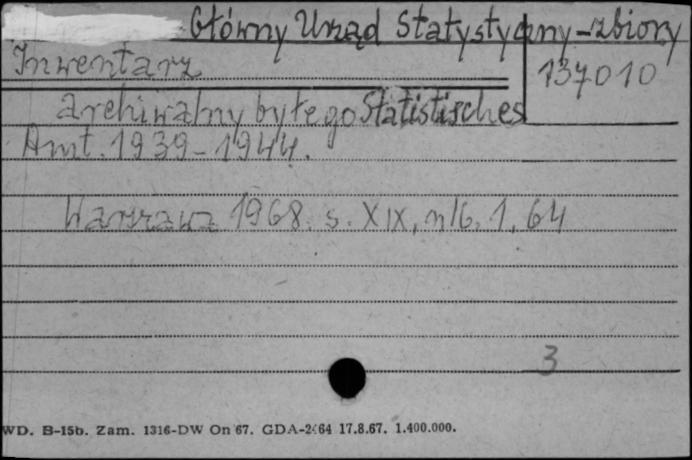 Główny Urząd Statystyczny-zbiory
Inwentarz
137010
archiwalny byłego Statistisches
Amt. 1939-1944.
Warszawa 1968. s. XIX, 1, 64
3
WD. B-15b. Zam. 1316-DW On 67. GDA-2464 17.8.67. 1.400.000.